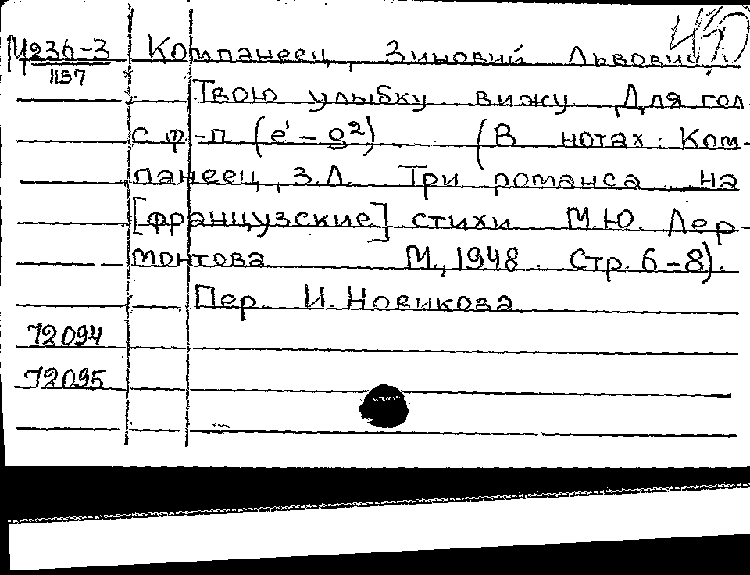 450
М236-3 Компанеец, Зиновий Львович.
1137
Твою улыбку вижу. Для гол.
с ф-п (e'-g²) (В нотах: Ком-
панеец, З.Л. Три романса на
[французские] стихи М.Ю. Лер-
монтова М., 1948. Стр. 6-8).
Пер. И. Новикова
72094
72095